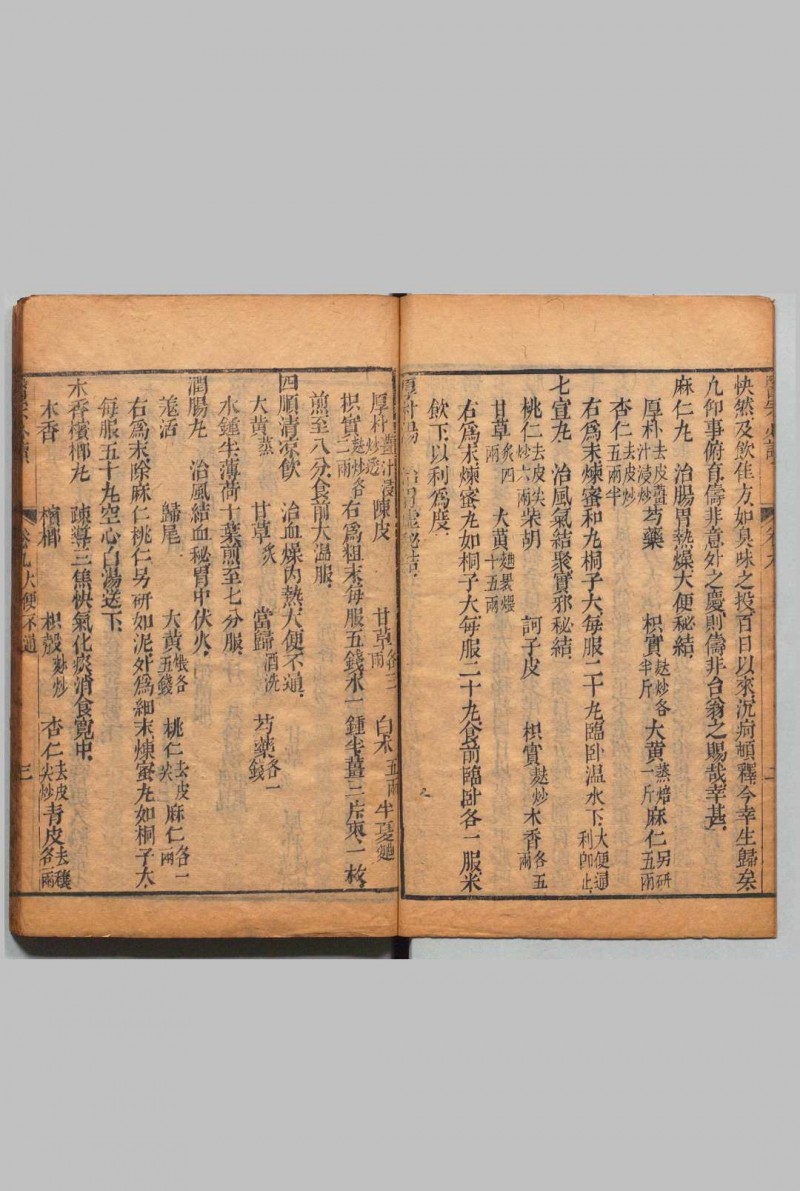 快然及飲佳方如臭味之投百日以來沉痾頓釋今幸生歸矣
凡仰事俯育儔非意外之慶則儔非台翁之賜哉幸甚
麻仁丸　治腸胃熱燥大便秘結
厚朴去皮薑汁浸炒　芍藥　枳實麩炒各半斤　大黃蒸焙一斤　麻仁另研五兩
杏仁去皮炒五兩半
右為末煉蜜和丸桐子大每服二十丸臨臥温水下大便通利即止
七宣丸　治風氣結聚實邪秘結
桃仁去皮尖炒六兩　柴胡　訶子皮　枳實麩炒　木香各五兩
甘草炙四兩　大黃麯裹煨十五兩
右為末煉蜜丸如桐子大每服二十丸食前臨臥各一服米
飲下以利為度
厚朴湯　治胃虛秘結
厚朴薑汁浸炒透　陳皮　甘草各三兩　白术五兩　半夏麯
枳實麩炒各二兩　右為粗末每服五錢水一鍾半薑三片棗一枚
煎至八分食前大温服
四順清凉飲　治血燥內熱大便不通
大黃蒸　甘草炙　當歸酒洗　芍藥各一錢
水鍾半薄荷十葉煎至七分服
潤腸丸　治風結血秘胃中伏火
羗活　歸尾　大黃煨各五錢　桃仁去皮尖　麻仁各一兩
右為末除麻仁桃仁另研如泥外為細末煉蜜丸如桐子大
每服五十丸空心白湯送下
木香檳榔丸　疎導三焦快氣化痰消食寬中
木香　檳榔　枳殼麩炒　杏仁去皮尖炒　青皮去穰各一兩
卷九大便不通
三